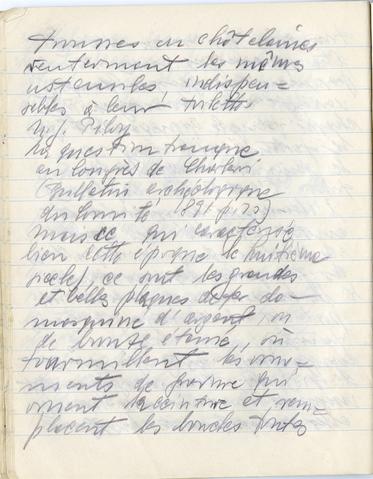 trousses en châtelaines
renferment les mêmes
ustensiles, indispen-
sables à leur toilette
V. J. Piloy
La question franque
au congrès de Charleroi
(Bulletin archéologique
du Comité 1891 p.
mais ce qui caractérise
bien cette époque (le huitième
siècle) ce sont les grandes
et belles plaques de fer da-
masquiné d'argent, ou
de bronze étamé, où
fourmillent les orne-
ments de gravure qui
ornent la ceinture et rem-
placent les boucles toutes